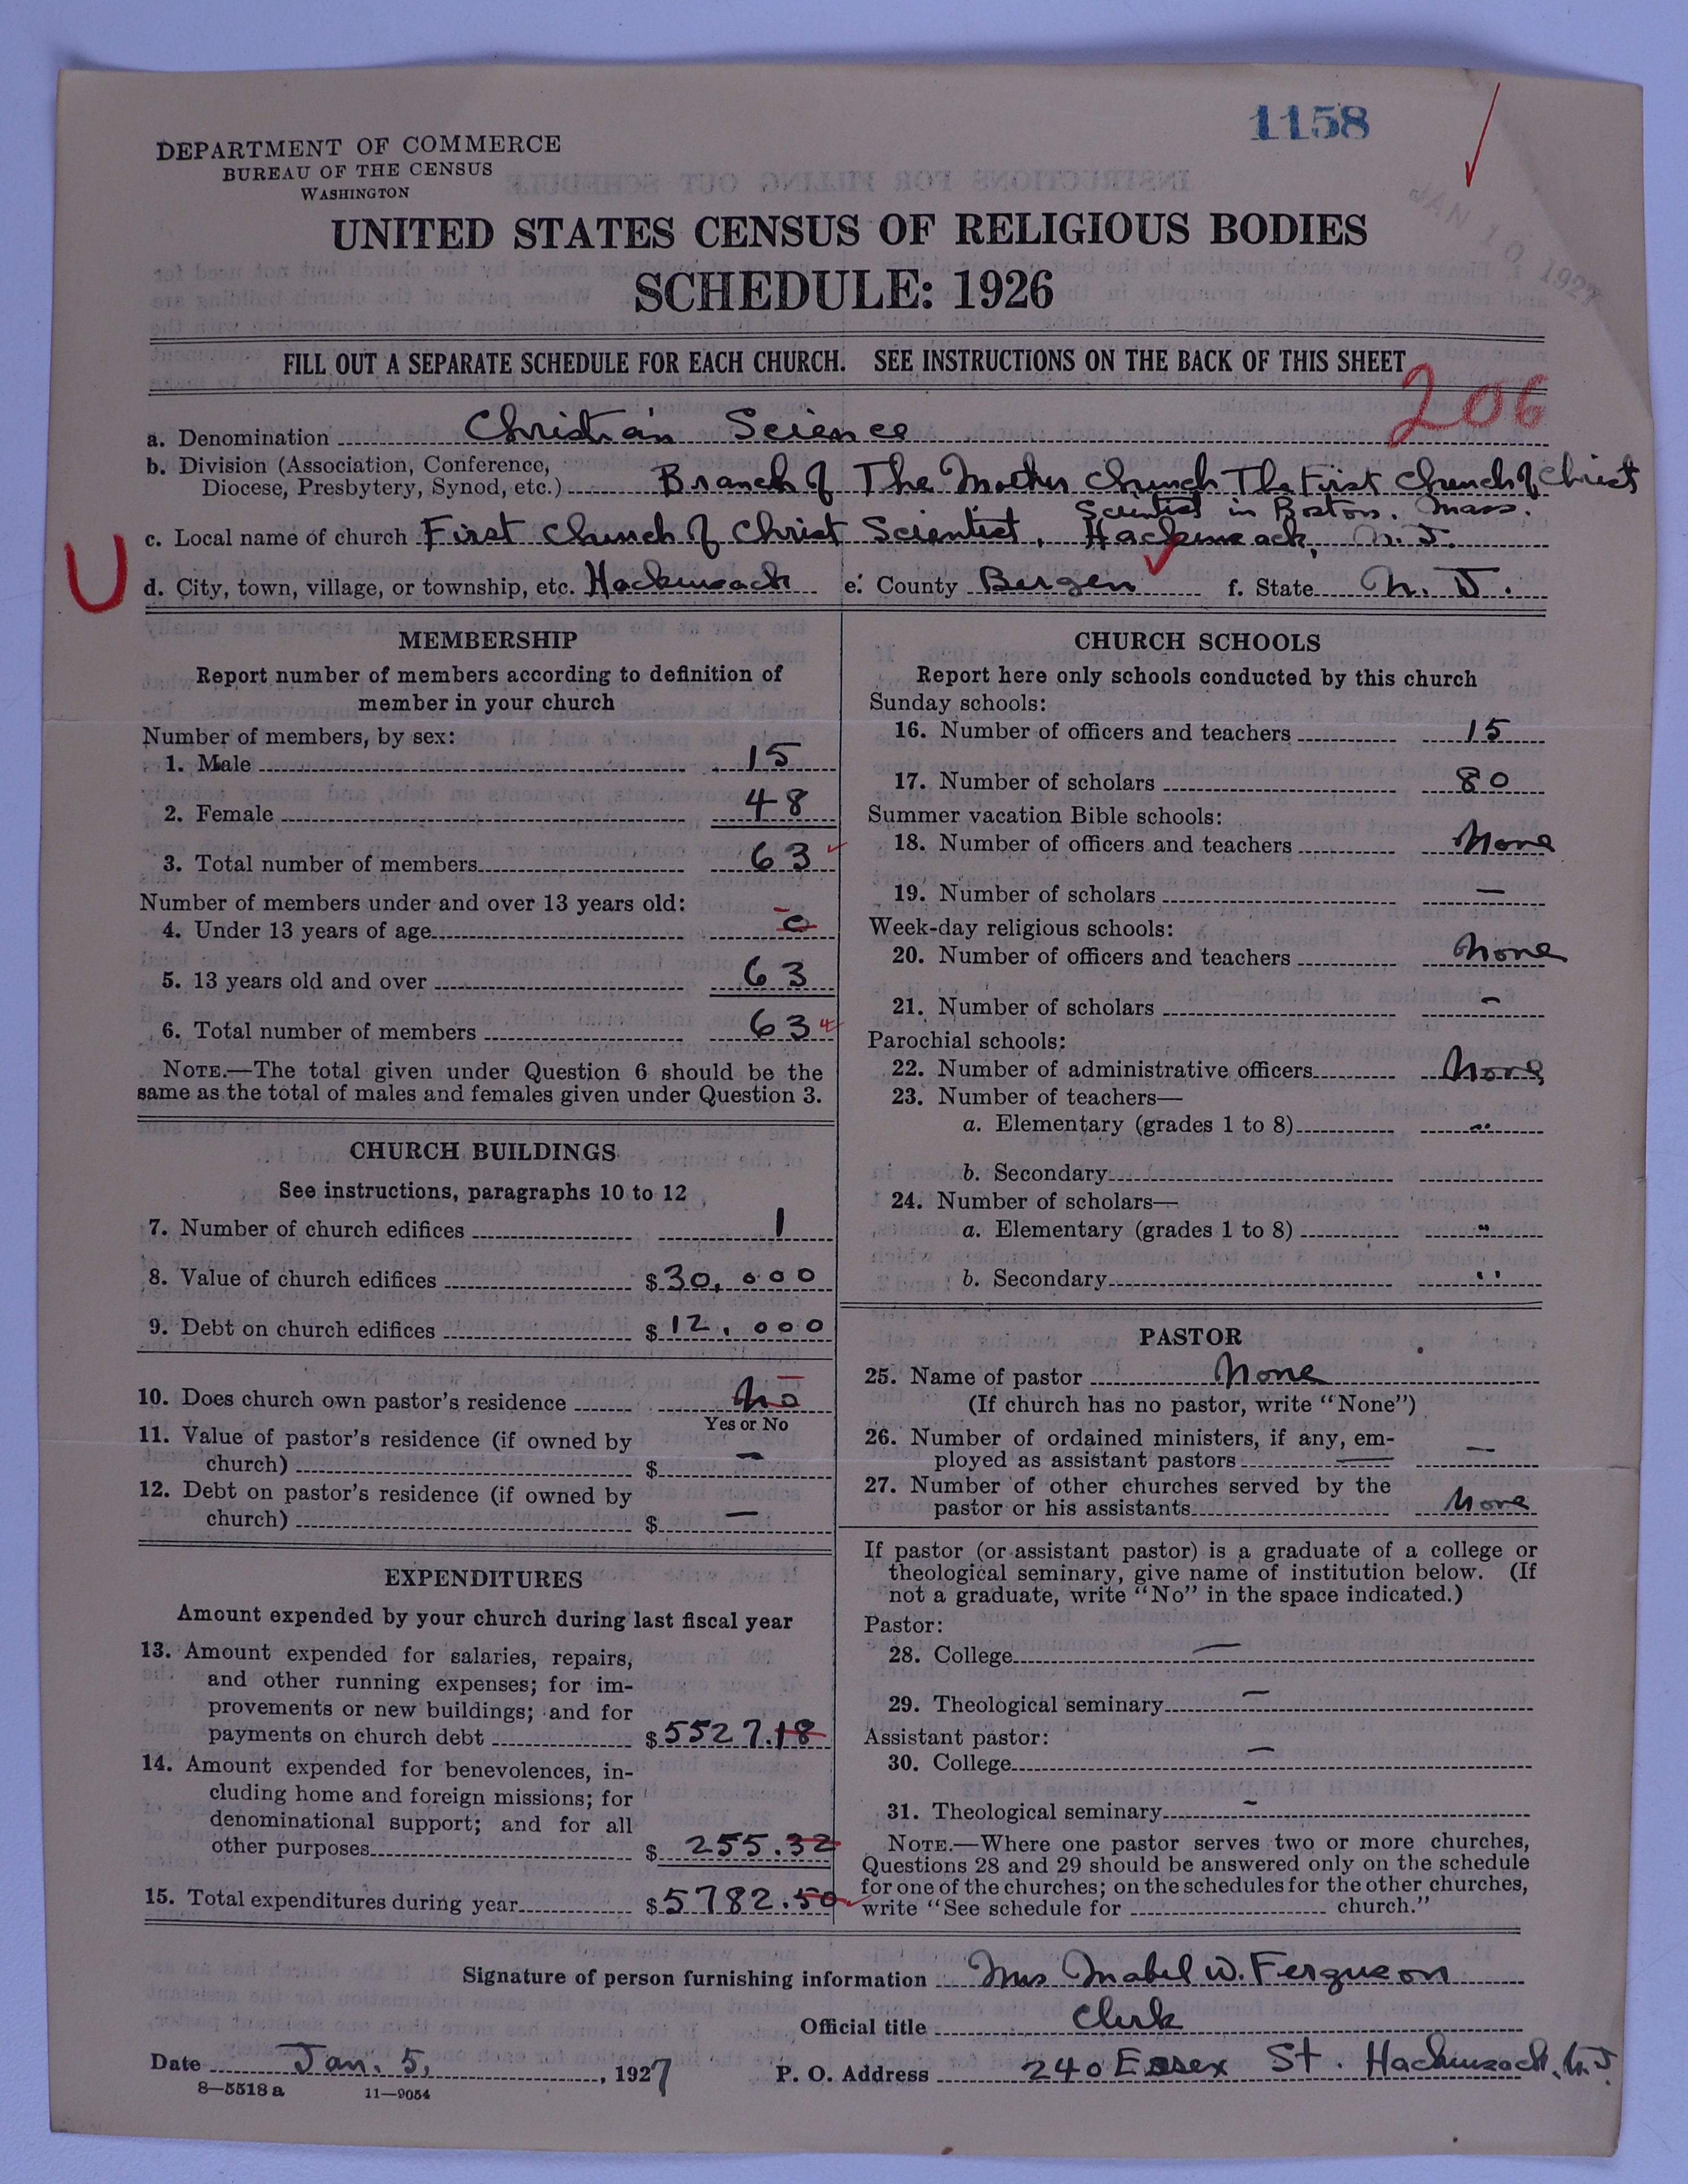 1158
DEPARTMENT OF COMMERCE
BUREAU OF THE CENSUS
WASHINGTON
JAN 10 1927
UNITED STATES CENSUS OF RELIGIOUS BODIES
SCHEDULE: 1926
FILL OUT A SEPARATE SCHEDULE FOR EACH CHURCH. SEE INSTRUCTIONS ON THE BACK OF THIS SHEET
206
a. Denomination Christian Science
b. Division (Association, Conference,
Diocese, Presbytery, Synod, etc.) Branch of The Mother Church The First Church of Christ
Scientist in Boston, Mass.
c. Local name of church First Church of Christ Scientist, Hackensack, N. J.
U
d. City, town, village, or township, etc. Hackensack e. County Bergen f. State N. J.
MEMBERSHIP
Report number of members according to definition of
member in your church
Number of members, by sex:
1. Male 15
2. Female 48
3. Total number of members 63
Number of members under and over 13 years old:
4. Under 13 years of age 0
5. 13 years old and over 63
6. Total number of members 63
NOTE.—The total given under Question 6 should be the
same as the total of males and females given under Question 3.
CHURCH BUILDINGS
See instructions, paragraphs 10 to 12
7. Number of church edifices 1
8. Value of church edifices $30,000
9. Debt on church edifices $12,000
10. Does church own pastor's residence No
Yes or No
11. Value of pastor's residence (if owned by
church) $ —
12. Debt on pastor's residence (if owned by
church) $ —
EXPENDITURES
Amount expended by your church during last fiscal year
13. Amount expended for salaries, repairs,
and other running expenses; for im-
provements or new buildings; and for
payments on church debt $5527.18
14. Amount expended for benevolences, in-
cluding home and foreign missions; for
denominational support; and for all
other purposes $255.32
15. Total expenditures during year $5782.50
CHURCH SCHOOLS
Report here only schools conducted by this church
Sunday schools:
16. Number of officers and teachers 15
17. Number of scholars 80
Summer vacation Bible schools:
18. Number of officers and teachers None
19. Number of scholars —
Week-day religious schools:
20. Number of officers and teachers None
21. Number of scholars -
Parochial schools:
22. Number of administrative officers None
23. Number of teachers—
a. Elementary (grades 1 to 8) "
b. Secondary
24. Number of scholars—
a. Elementary (grades 1 to 8) "
b. Secondary "
PASTOR
25. Name of pastor None
(If church has no pastor, write "None")
26. Number of ordained ministers, if any, em-
ployed as assistant pastors —
27. Number of other churches served by the
pastor or his assistants None
If pastor (or assistant pastor) is a graduate of a college or
theological seminary, give name of institution below. (If
not a graduate, write "No" in the space indicated.)
Pastor:
28. College —
29. Theological seminary —
Assistant pastor:
30. College —
31. Theological seminary -
NOTE.—Where one pastor serves two or more churches,
Questions 28 and 29 should be answered only on the schedule
for one of the churches; on the schedules for the other churches,
write "See schedule for church."
Signature of person furnishing information Mrs Mabel W. Ferguson
Official title Clerk
Date Jan. 5, 1927 P. O. Address 240 Essex St. Hackensack, N. J.
8—5518 a 11—9054